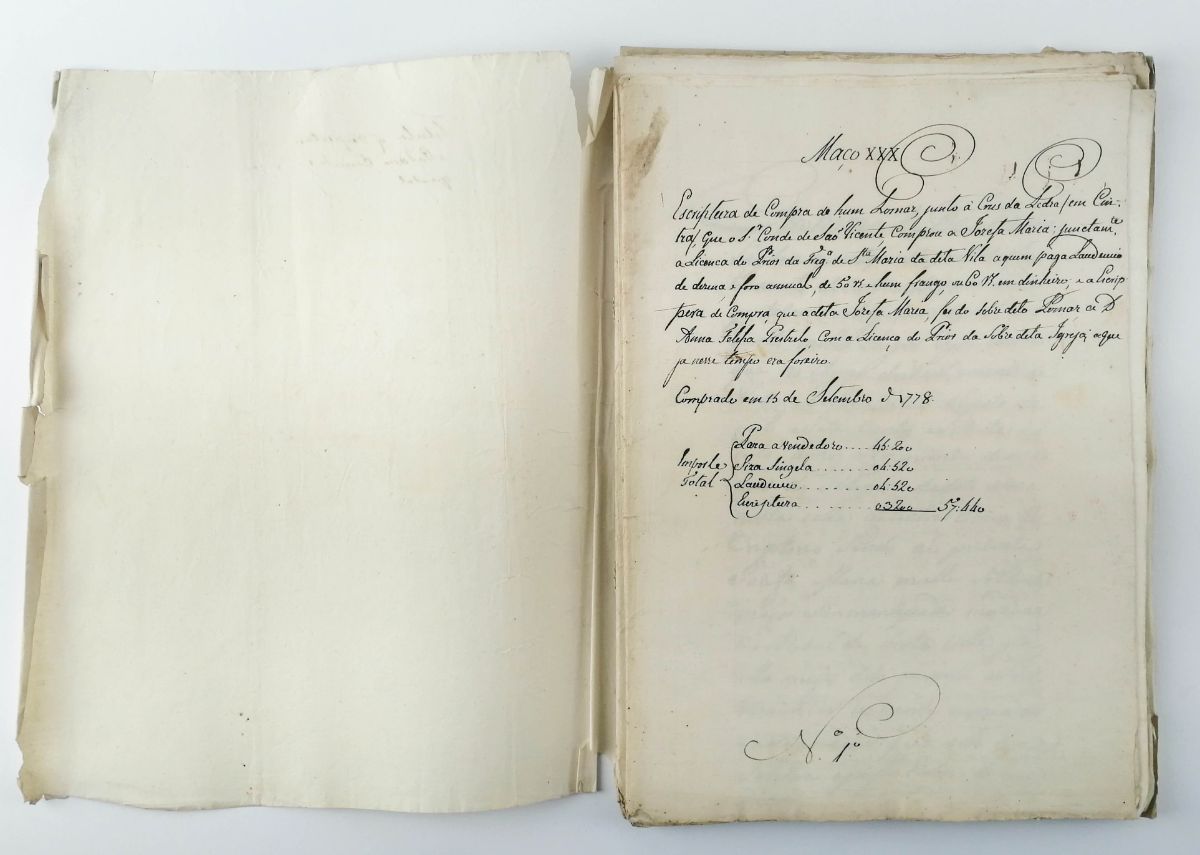 Maço XXX
Escriptura de Compra de hum Pomar, junto á Crus da Pedra/em Cin-
tra/, que o S.r Conde de Saõ Vicente, Comprou a Jozefa Maria; junctam.te
a Licenca do Prior da Freg.a de S.ta Maria da dita Vila a quem paga Laudemio
de dezena e foro annual, de 50 r.s e hum frango, ou 60 r.s em dinheiro; e a Escrip
tura de Compra, que a dita Jozefa Maria, fes do sobredito Pomar a D
Anna Felipa Com a Licença do Prior da Sobre dita Igreja, a que
ja nesse tempo era foreiro.
Comprado em 15 de Setembro d' 1778.
Importe Total
Para a vendedora .... 45:200
Siza Singela ....... 04:520
Laudemio ........ 04:520
Escriptura ........ 03200 57:440
N.o 1o